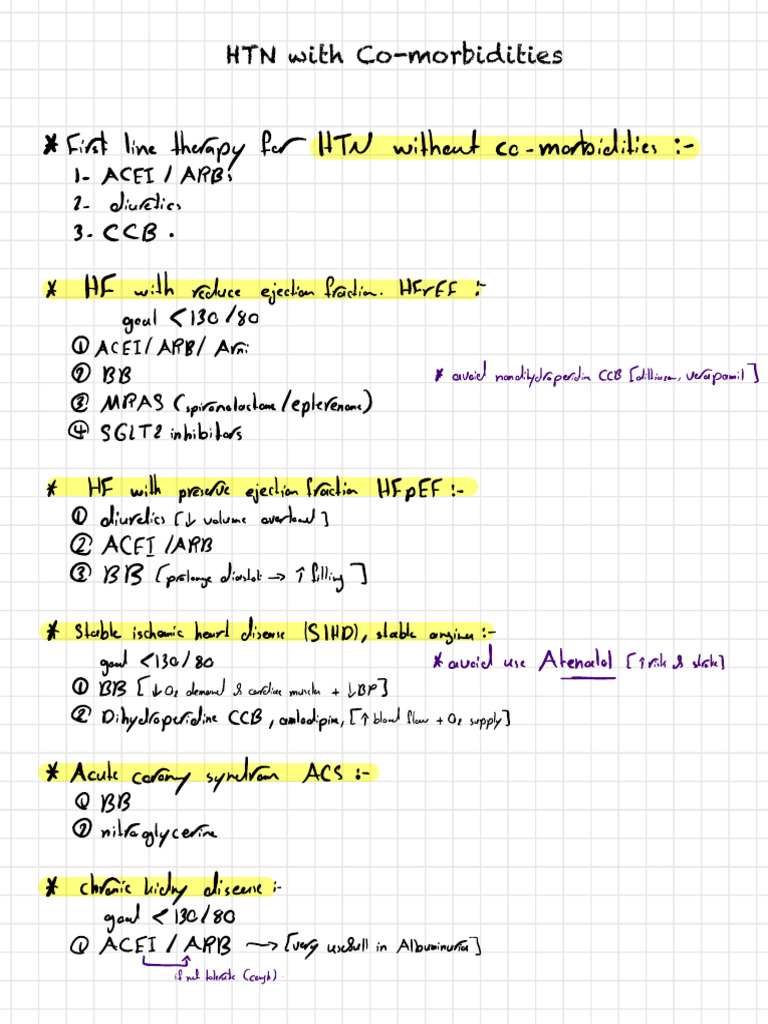 HTN with Co-morbidities
* First line therapy for HTN without co-morbidities :-
1- ACEI / ARBs
2- diuretics
3- CCB .
* HF with reduce ejection fraction. HFrEF :-
goal < 130 / 80
① ACEI / ARB / Arni
② BB
* avoid nondihydroperidine CCB [diltiazem, verapamil]
③ MRAS (spironolactone / eplerenone)
④ SGLT2 inhibitors
* HF with preserve ejection fraction HFpEF :-
① diuretics [↓ volume overload]
② ACEI / ARB
③ BB [prolonge diastol → ↑ filling]
* Stable ischemic heart disease (SIHD), stable angina :-
goal < 130 / 80
* avoid use Atenolol [↑ risk of stroke]
① BB [↓ O2 demand of cardiac muscle + ↓ BP]
② Dihydroperidine CCB, amlodipine, [↑ blood flow + O2 supply]
* Acute corony syndrom ACS :-
① BB
② nitroglycerine
* chronic kidny disease :-
goal < 130 / 80
① ACEI / ARB → [very usefull in Albuminuria]
if not tolerate (cough)